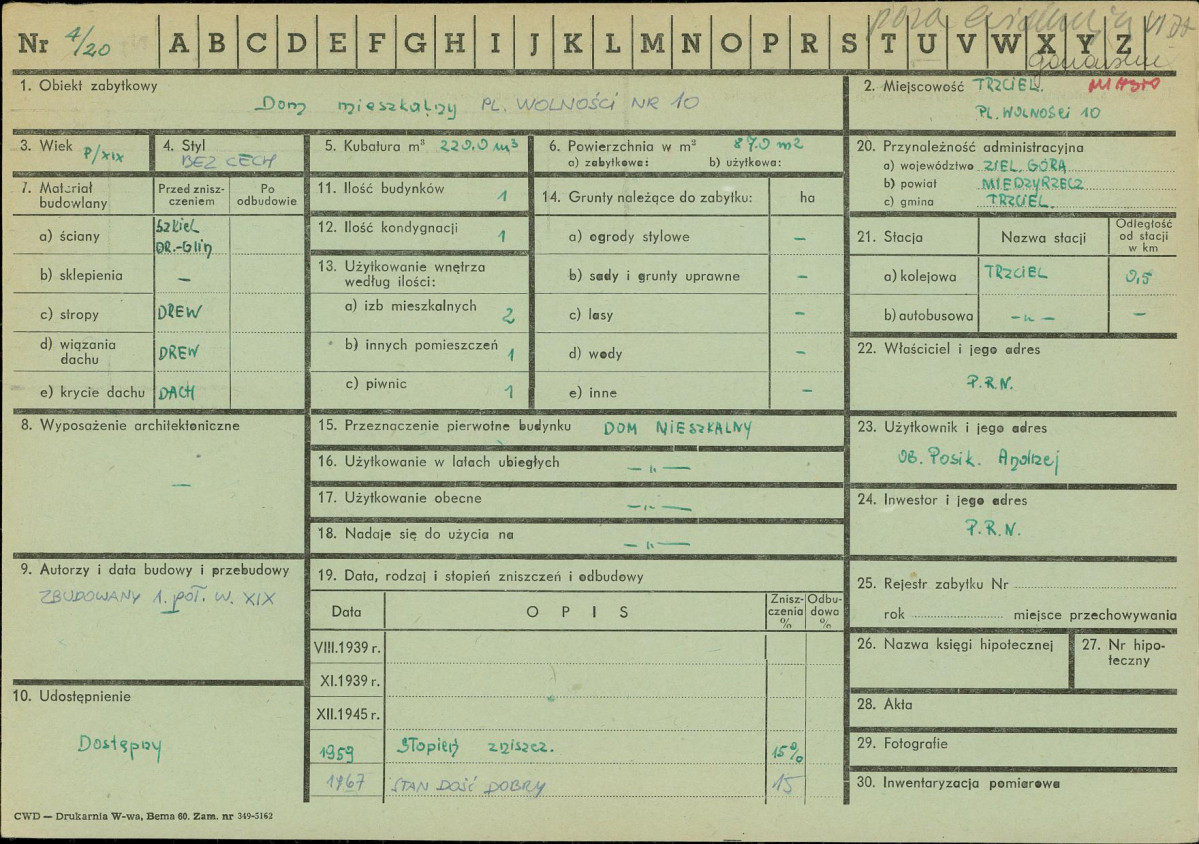 poza ewidencją
Nr 4/20 A B C D E F G H I J K L M N O P R S T U V W X Y Z
1. Obiekt zabytkowy
Dom mieszkalny PL. WOLNOŚCI NR 10
2. Miejscowość TRZCIEL. MIASTO
PL. WOLNOŚCI 10
3. Wiek P/XIX
4. Styl
BEZ CECH
5. Kubatura m³ 220.0 m³
6. Powierzchnia w m² 87.0 m2
a) zabytkowa: b) użytkowa:
20. Przynależność administracyjna
a) województwo ZIEL. GÓRA
b) powiat MIĘDZYRZECZ
c) gmina TRZCIEL.
7. Materiał budowlany
Przed zniszczeniem
Po odbudowie
a) ściany SZKIEL
DR.-Glin
b) sklepienia —
c) stropy DREW
d) wiązania dachu DREW
e) krycie dachu DACH
11. Ilość budynków 1
12. Ilość kondygnacji 1
13. Użytkowanie wnętrza
według ilości:
a) izb mieszkalnych 2
b) innych pomieszczeń 1
c) piwnic 1
14. Grunty należące do zabytku: ha
a) ogrody stylowe —
b) sady i grunty uprawne —
c) lasy —
d) wody —
e) inne —
21. Stacja Nazwa stacji Odległość od stacji w km
a) kolejowa TRZCIEL 0,5
b) autobusowa -„- —
22. Właściciel i jego adres
P.R.N.
8. Wyposażenie architektoniczne
—
15. Przeznaczenie pierwotne budynku DOM MIESZKALNY
16. Użytkowanie w latach ubiegłych —„—
17. Użytkowanie obecne —„—
18. Nadaje się do użycia na —„—
23. Użytkownik i jego adres
OB. Posik. Andrzej
24. Inwestor i jego adres
P.R.N.
9. Autorzy i data budowy i przebudowy
ZBUDOWANY 1. poł. W. XIX
10. Udostępnienie
Dostępny
19. Data, rodzaj i stopień zniszczeń i odbudowy
Data OPIS Zniszczenia % Odbudowa %
VIII.1939 r.
XI.1939 r.
XII.1945 r.
1959 Stopień zniszcz. 15%
1967 STAN DOŚĆ DOBRY 15
25. Rejestr zabytku Nr
rok miejsce przechowywania
26. Nazwa księgi hipotecznej
27. Nr hipoteczny
28. Akta
29. Fotografie
30. Inwentaryzacja pomiarowa
CWD — Drukarnia W-wa, Bema 60. Zam. nr 349-5162